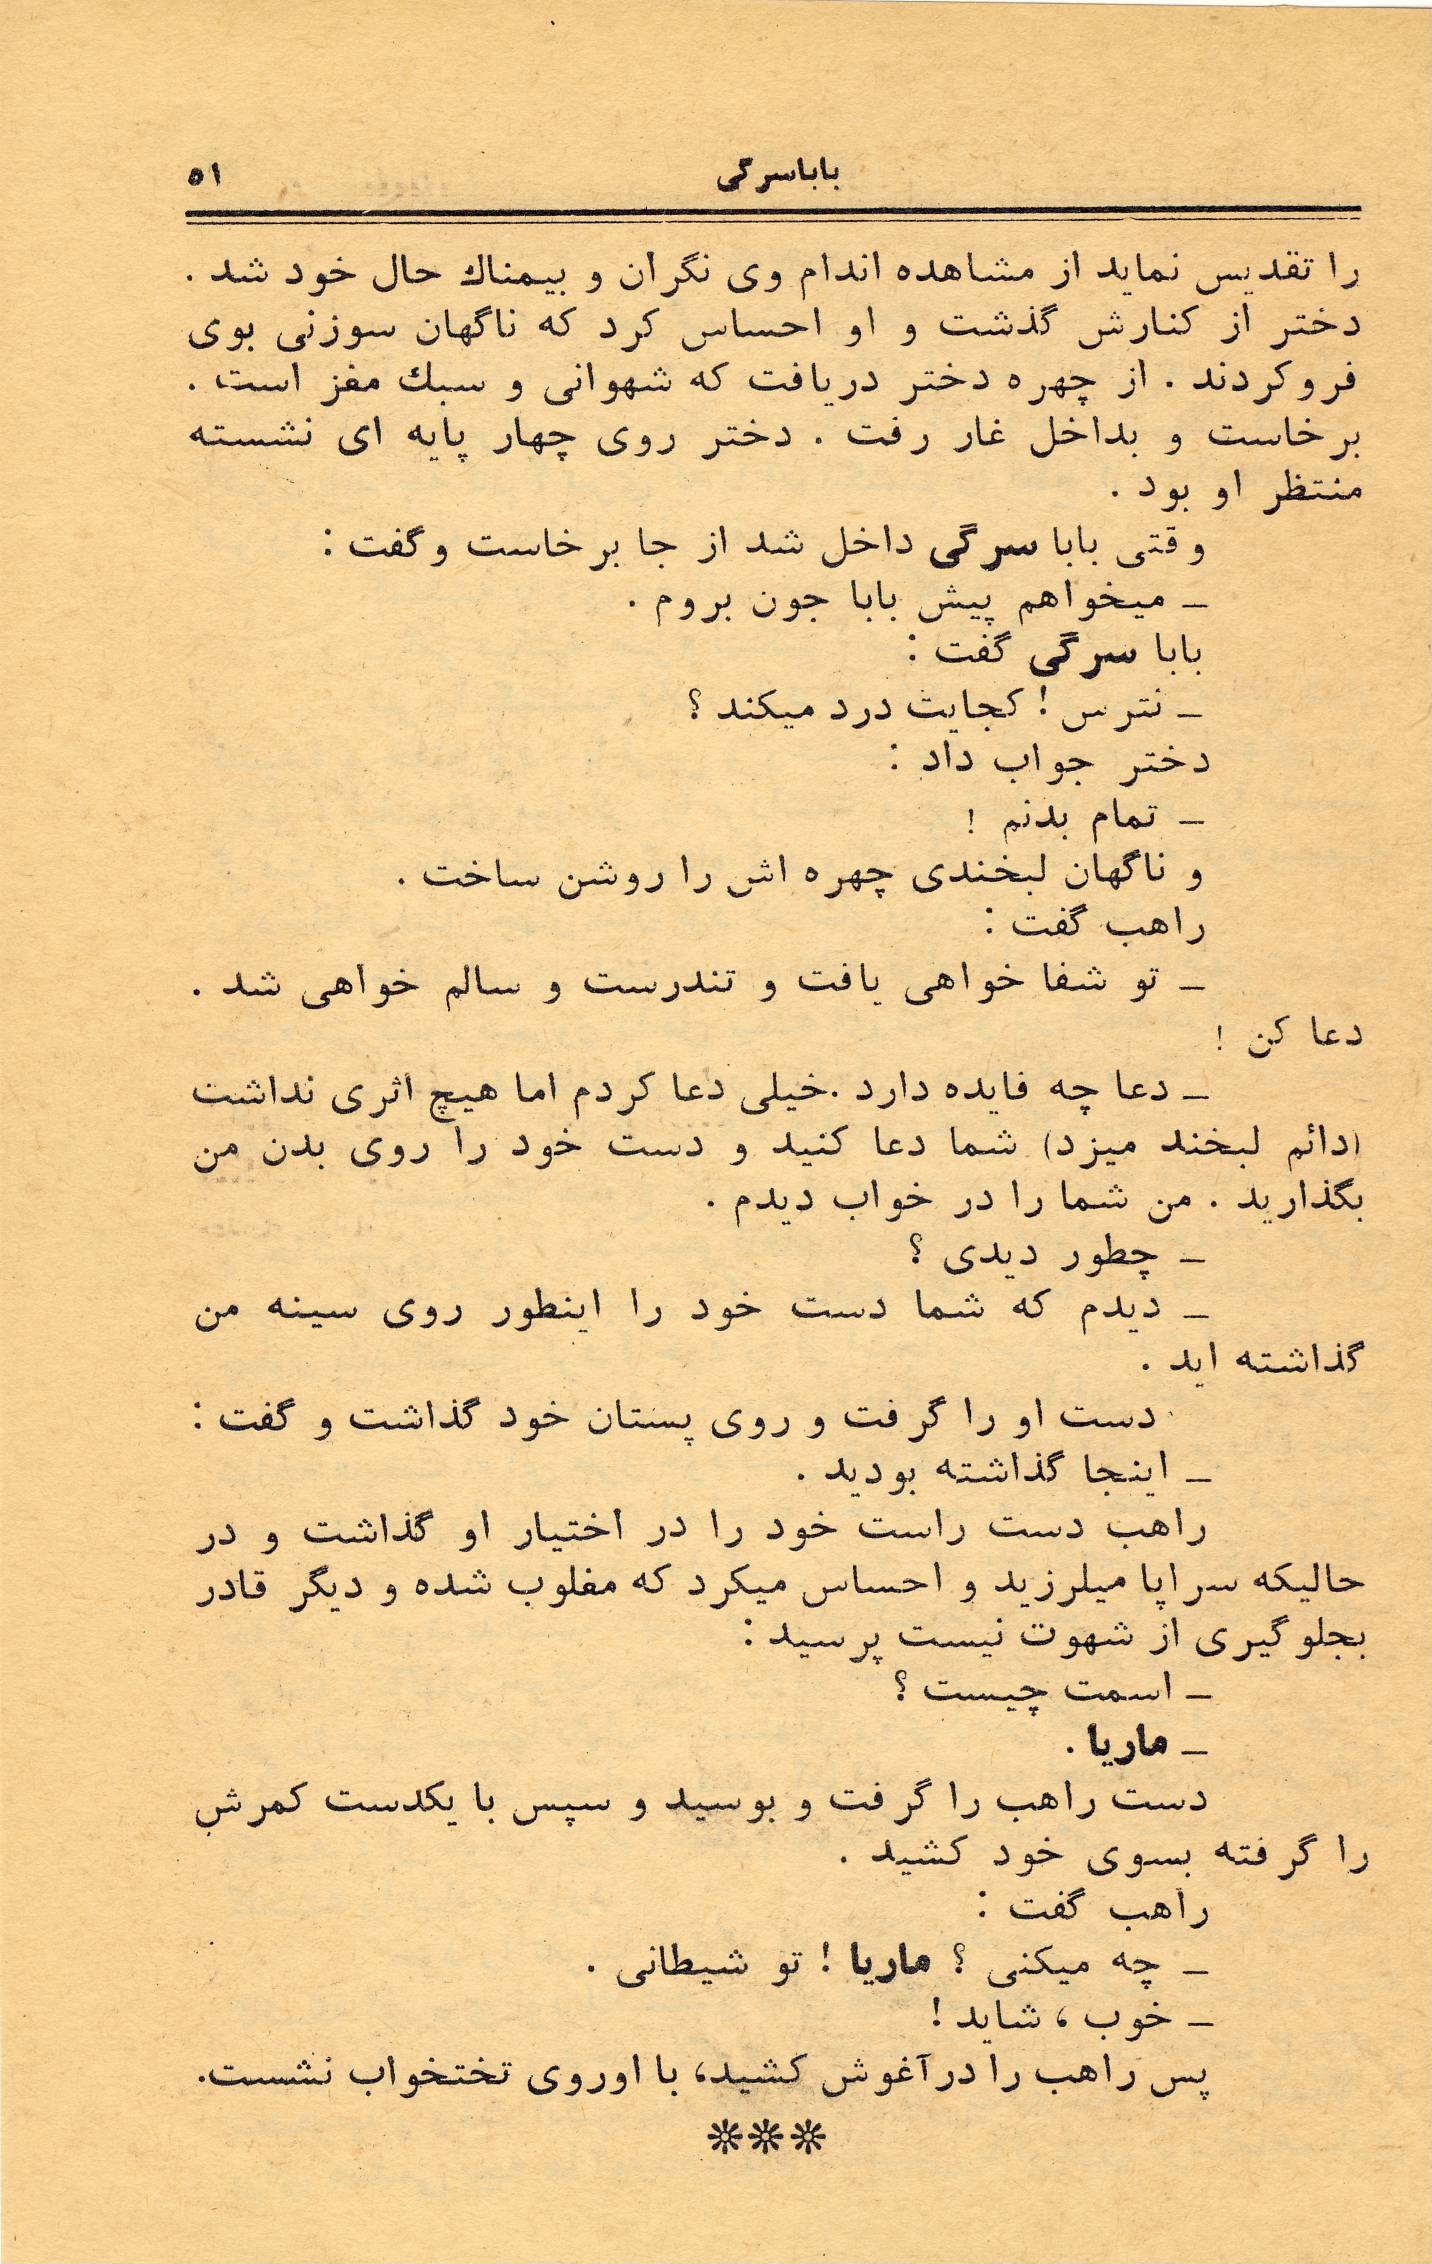 باباسرگی ۵۱
را تقدیس نماید از مشاهده اندام وی نگران و بیمناك حال خود شد .
دختر از کنارش گذشت و او احساس کرد که ناگهان سوزنی بوی
فروکردند . از چهره دختر دریافت که شهوانی و سبك مغز است .
برخاست و بداخل غار رفت . دختر روی چهار پایه ای نشسته
منتظر او بود .
وقتی بابا سرگی داخل شد از جا برخاست وگفت :
ـ میخواهم پیش بابا جون بروم .
بابا سرگی گفت :
ـ نترس ! کجایت درد میکند ؟
دختر جواب داد :
ـ تمام بدنم !
و ناگهان لبخندی چهره اش را روشن ساخت .
راهب گفت :
ـ تو شفا خواهی یافت و تندرست و سالم خواهی شد .
دعا کن !
ـ دعا چه فایده دارد .خیلی دعا کردم اما هیچ اثری نداشت
(دائم لبخند میزد) شما دعا کنید و دست خود را روی بدن من
بگذارید . من شما را در خواب دیدم .
ـ چطور دیدی ؟
ـ دیدم که شما دست خود را اینطور روی سینه من
گذاشته اید .
دست او را گرفت و روی پستان خود گذاشت و گفت :
ـ اینجا گذاشته بودید .
راهب دست راست خود را در اختیار او گذاشت و در
حالیکه سراپا میلرزید و احساس میکرد که مغلوب شده و دیگر قادر
بجلوگیری از شهوت نیست پرسید :
ـ اسمت چیست ؟
ـ ماریا .
دست راهب را گرفت و بوسید و سپس با یکدست کمرش
را گرفته بسوی خود کشید .
راهب گفت :
ـ چه میکنی ؟ ماریا ! تو شیطانی .
ـ خوب ، شاید !
پس راهب را درآغوش کشید، با اوروی تختخواب نشست.
※※※